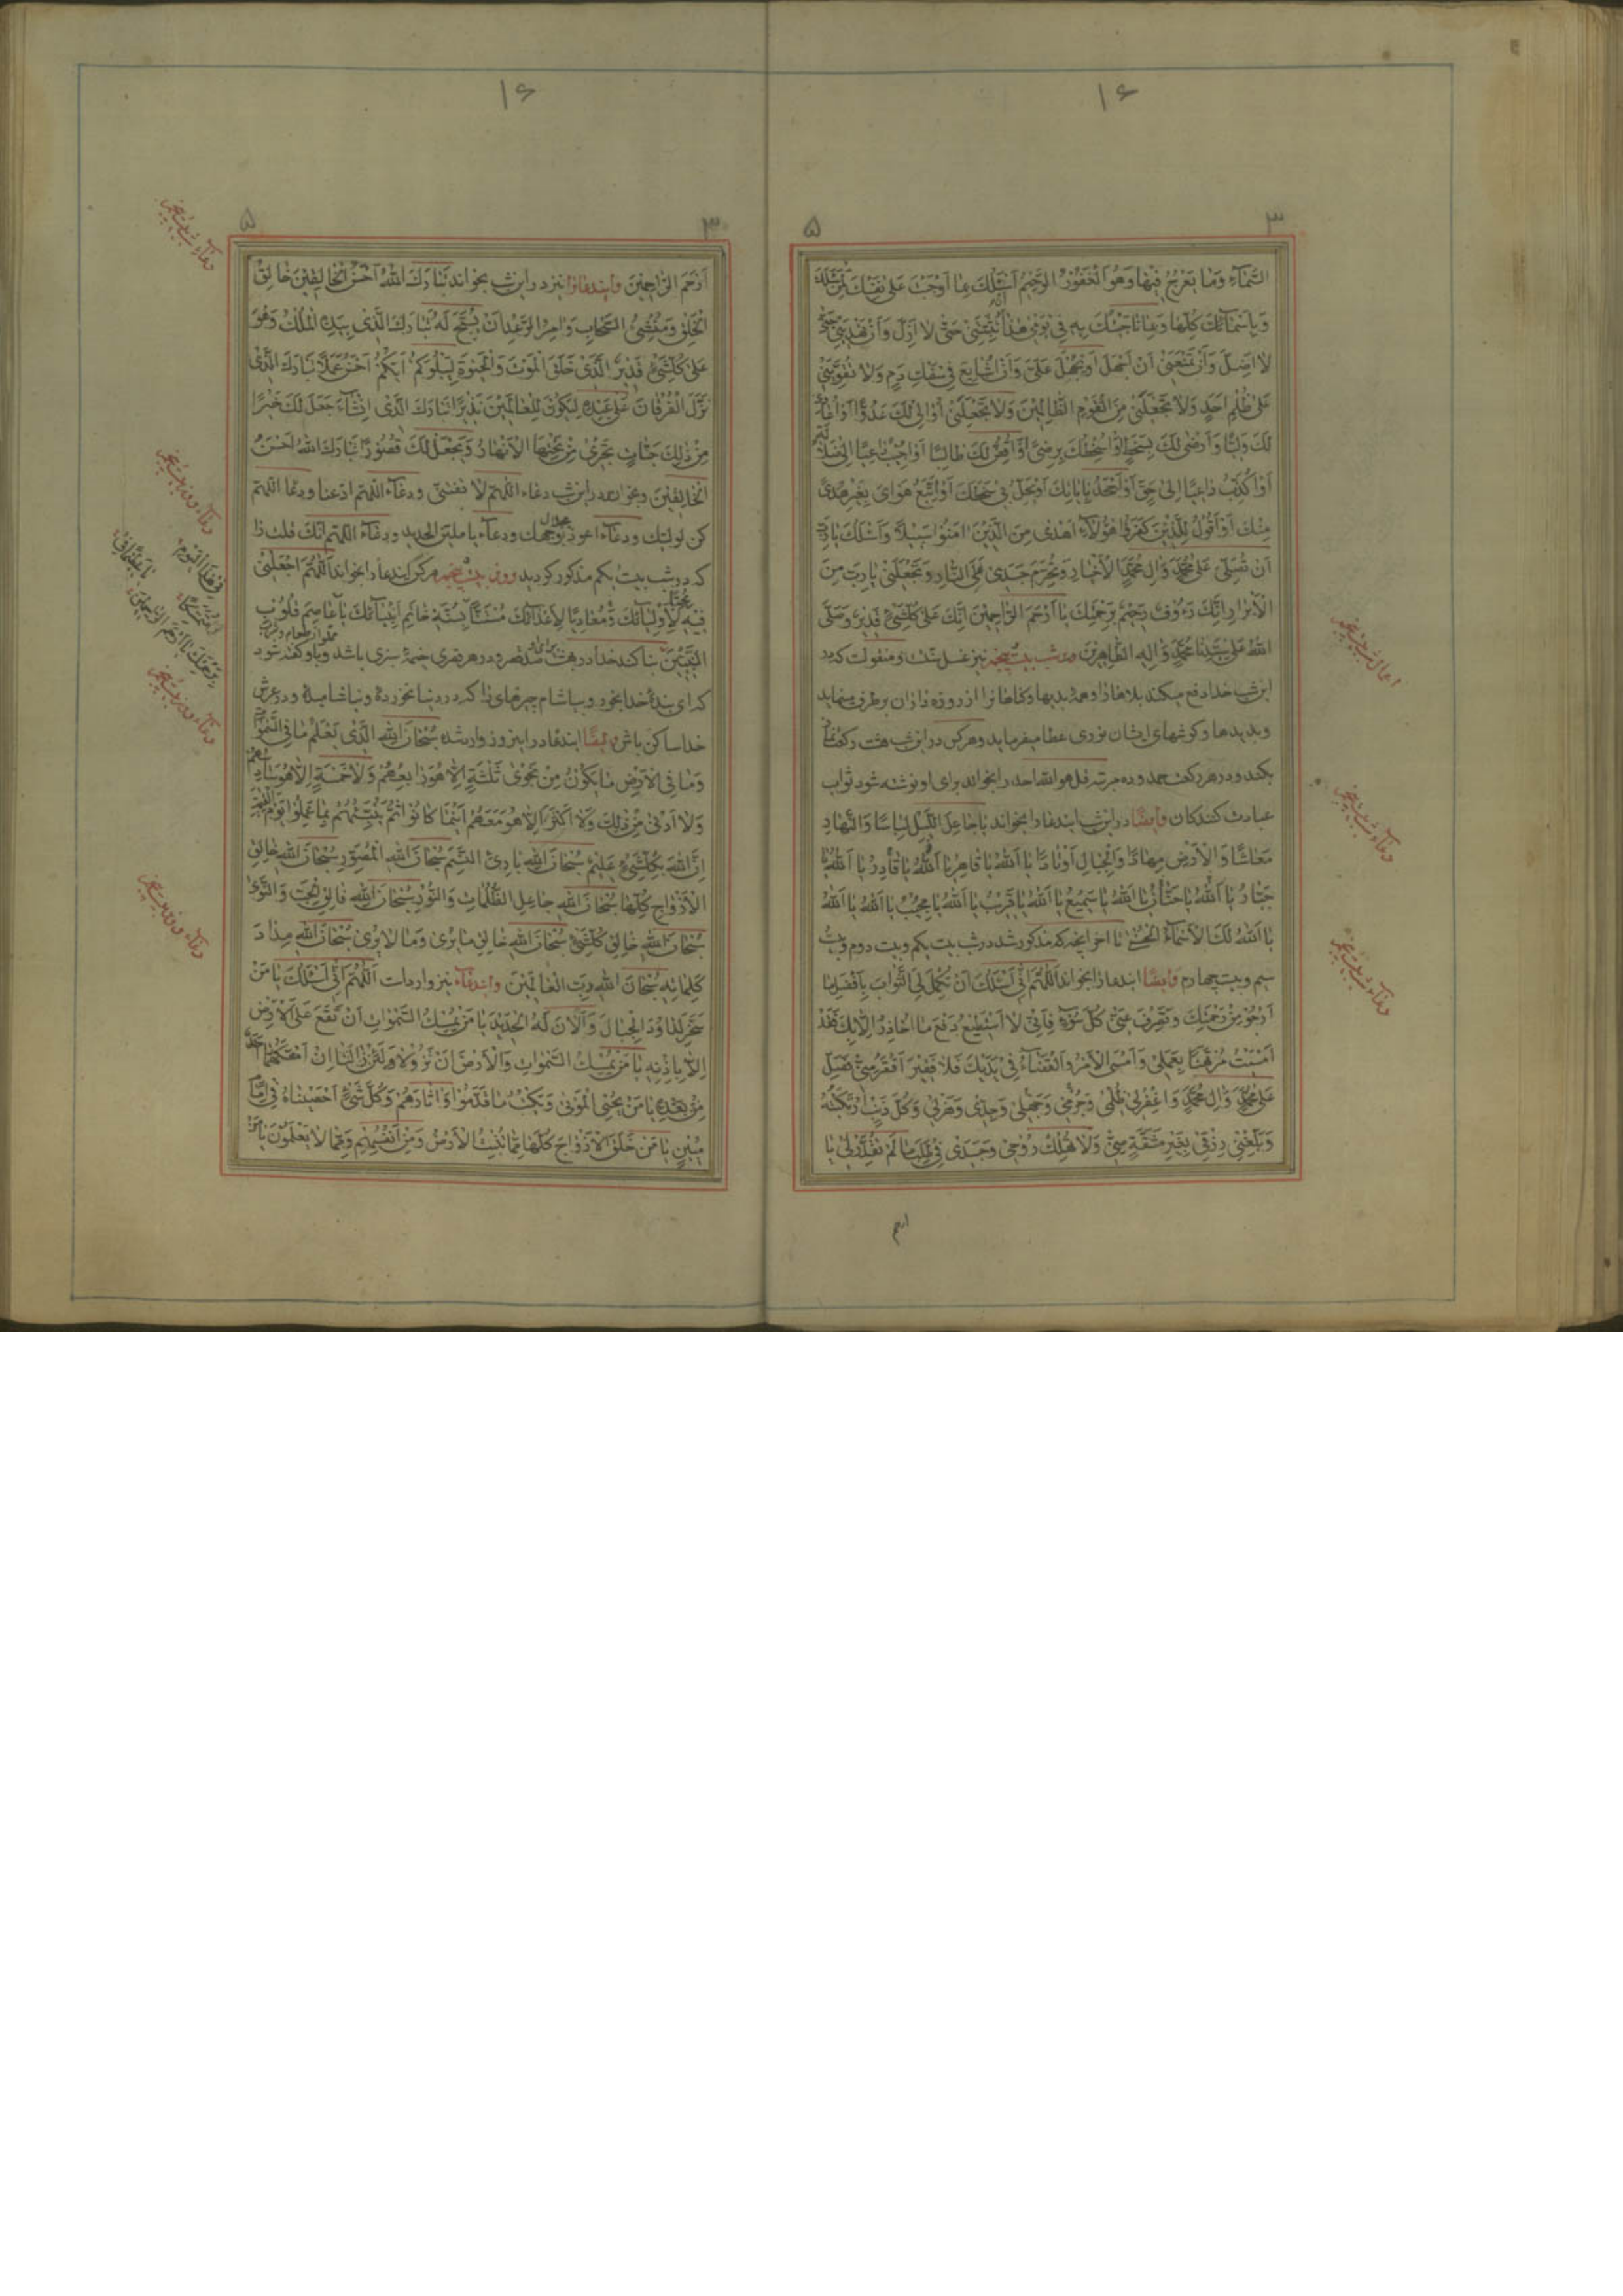 ۱۶
۳
۵
السَّمَاءِ وَمَا يَعْرُجُ فِيهَا وَهُوَ الْغَفُورُ الرَّحِيمُ أَسْئَلُكَ بِمَا أَوْجَبْتَ عَلَى نَفْسِكَ لِمَنْ سَئَلَكَ
وَبِأَسْمَائِكَ كُلِّهَا وَبِمَا نَاجَيْتُكَ بِهِ فِي يَوْمِي هَذَا أَنْ حَتَّى لَا أَزِلَّ وَأَنْ تَهْدِيَنِي حَتَّى
لَا أَضِلَّ وَأَنْ تَمْنَعَنِي أَنْ أَجْهَلَ أَوْ يُجْهَلَ عَلَيَّ وَأَنْ أُشَايِعَ فِي سَفْكِ دَمٍ وَلَا تُقَوِّيَنِي
عَلَى ظُلْمِ أَحَدٍ وَلَا تَجْعَلَنِي مِنَ الْقَوْمِ الظَّالِمِينَ وَلَا تَجْعَلَنِي أُوَالِي لَكَ عَدُوًّا أَوْ أُعَادِيَ
لَكَ وَلِيًّا وَأَرْضَى لَكَ بِسَخَطٍ أَوْ أُسْخِطَكَ بِرِضًى أَوْ لَكَ طَالِبًا أَوْ أُجِيبُ دَاعِيًا إِلَى
أَوْ أُكَذِّبُ دَاعِيًا إِلَى حَقٍّ أَوْ أَجْحَدُ بِآيَاتِكَ أَوْ أَحُلُّ فِي سَخَطِكَ أَوْ أَتَّبِعُ هَوَايَ بِغَيْرِ هُدًى
مِنْكَ أَوْ أَقُولُ لِلَّذِينَ كَفَرُوا هَؤُلَاءِ أَهْدَى مِنَ الَّذِينَ آمَنُوا سَبِيلًا وَأَسْئَلُكَ يَا رَبِّ
أَنْ تُصَلِّيَ عَلَى مُحَمَّدٍ وَآلِ مُحَمَّدٍ الْأَخْيَارِ وَتُحَرِّمَ جَسَدِي عَلَى النَّارِ وَتَجْعَلَنِي يَا رَبِّ مِنَ
الْأَبْرَارِ إِنَّكَ رَءُوفٌ رَحِيمٌ بِرَحْمَتِكَ يَا أَرْحَمَ الرَّاحِمِينَ إِنَّكَ عَلَى كُلِّ شَيْءٍ قَدِيرٌ وَصَلَّى
اللَّهُ عَلَى سَيِّدِنَا مُحَمَّدٍ وَآلِهِ الطَّاهِرِينَ ودر شب بيست پنجم نيز غسل سنت است و منقولست که در
اين شب خدا دفع ميکند بلاها را و همه بديها و کفاها را از روزه داران برطرف مينمايد
و بديدها و گوشهاى ايشان نورى عطا ميفرمايد و هر کس در اين شب هشت رکعت نماز
بکند و در هر رکعت حمد و ده مرتبه قل هو الله احد را بخواند براى او نوشته شود ثواب
عبادت کنندکان وايضا در اين شب ايندعا را بخواند يَا جَاعِلَ اللَّيْلِ لِبَاسًا وَالنَّهَارِ
مَعَاشًا وَالْأَرْضِ مِهَادًا وَالْجِبَالِ أَوْتَادًا يَا اللَّهُ يَا قَاهِرُ يَا اللَّهُ يَا قَادِرُ يَا اللَّهُ يَا
جَبَّارُ يَا اللَّهُ يَا حَنَّانُ يَا اللَّهُ يَا سَمِيعُ يَا اللَّهُ يَا قَرِيبُ يَا اللَّهُ يَا مُجِيبُ يَا اللَّهُ يَا اللَّهُ
يَا اللَّهُ لَكَ الْأَسْمَاءُ الْحُسْنَى تا اخر انچه که مذکور شد در شب بيست يکم و بيست دوم و بيست
سيم و بيست چهارم وايضا ايندعا را بخواند اَللَّهُمَّ اِنِّي أَسْئَلُكَ أَنْ تُكْمِلَ لِيَ الثَّوَابَ بِأَفْضَلِ مَا
أَرْجُو مِنْ رَحْمَتِكَ وَتَصْرِفَ عَنِّي كُلَّ سُوءٍ فَإِنِّي لَا أَسْتَطِيعُ دَفْعَ مَا أُحَاذِرُ إِلَّا بِكَ فَقَدْ
أَمْسَيْتُ مُرْتَهَنًا بِعَمَلِي وَأَمْسَى الْأَمْرُ وَالْقَضَاءُ فِي يَدَيْكَ فَلَا فَقِيرَ أَفْقَرُ مِنِّي فَصَلِّ
عَلَى مُحَمَّدٍ وَآلِ مُحَمَّدٍ وَاغْفِرْ لِي ظُلْمِي وَجُرْمِي وَجَهْلِي وَجِدِّي وَهَزْلِي وَكُلَّ ذَنْبٍ ارْتَكَبْتُهُ
وَبَلِّغْنِي رِزْقِي بِغَيْرِ مَشَقَّةٍ مِنِّي وَلَا تُهْلِكْ رُوحِي وَجَسَدِي فِي طَلَبِ مَا لَمْ تُقَدِّرْ لِي يَا
اعمال شب بيست پنجم
دعاء شب بيست پنجم
دعاء شب بيست پنجم
ارحم
۱۶
۳
۵
أَرْحَمَ الرَّاحِمِينَ وايندعا را نيز در اين شب بخواند تَبَارَكَ اللَّهُ أَحْسَنُ الْخَالِقِينَ خَالِقُ
الْخَلْقِ وَمُنْشِئُ السَّحَابِ وَآمِرُ الرَّعْدِ أَنْ يُسَبِّحَ لَهُ تَبَارَكَ الَّذِي بِيَدِهِ الْمُلْكُ وَهُوَ
عَلَى كُلِّ شَيْءٍ قَدِيرٌ الَّذِي خَلَقَ الْمَوْتَ وَالْحَيٰوةَ لِيَبْلُوَكُمْ أَيُّكُمْ أَحْسَنُ عَمَلًا تَبَارَكَ الَّذِي
نَزَّلَ الْفُرْقَانَ عَلَى عَبْدِهِ لِيَكُونَ لِلْعَالَمِينَ نَذِيرًا تَبَارَكَ الَّذِي إِنْ شَاءَ جَعَلَ لَكَ خَيْرًا
مِنْ ذَلِكَ جَنَّاتٍ تَجْرِي مِنْ تَحْتِهَا الْأَنْهَارُ وَيَجْعَلْ لَكَ قُصُورًا تَبَارَكَ اللَّهُ أَحْسَنُ
الْخَالِقِينَ وبخواند در اين شب دعاء اللهم لا تفتنى ودعاء اللهم ادعنا ودعا اللهم
كن لوليك ودعاء اعوذ بجلال وجهك ودعاء يا ملين الحديد ودعاء اللهم انك قلت را
که در شب بيست يکم مذکور گرديد وروز بيست پنجم هر کس ايندعا را بخواند اَللَّهُمَّ اجْعَلْنِي
فِيهِ مُحِبًّا لِأَوْلِيَائِكَ وَمُعَادِيًا لِأَعْدَائِكَ مُسْتَنًّا بِسُنَّةِ خَاتَمِ أَنْبِيَائِكَ يَا عَاصِمَ قُلُوبِ
النَّبِيِّينَ بنا کند خدا در بهشت براى او صد قصر و در هر قصرى خيمۀ سبزى باشد و باو گفته شود
که اى بندۀ خدا بخور و بياشام چيزهاى را که در دنيا نخوردۀ و نياشاميدۀ و در عرش
خدا ساکن باش وايضا ايندعا در اينروز وارد شده سُبْحَانَ اللَّهِ الَّذِي يَعْلَمُ مَا فِي السَّمٰوَاتِ
وَمَا فِي الْأَرْضِ مَا يَكُونُ مِنْ نَجْوَى ثَلٰثَةٍ إِلَّا هُوَ رَابِعُهُمْ وَلَا خَمْسَةٍ إِلَّا هُوَ سَادِسُهُمْ
وَلَا أَدْنَى مِنْ ذَلِكَ وَلَا أَكْثَرَ إِلَّا هُوَ مَعَهُمْ أَيْنَمَا كَانُوا ثُمَّ يُنَبِّئُهُمْ بِمَا عَمِلُوا يَوْمَ الْقِيٰمَةِ
إِنَّ اللَّهَ بِكُلِّ شَيْءٍ عَلِيمٌ سُبْحَانَ اللَّهِ بَارِئِ النَّسَمِ سُبْحَانَ اللَّهِ الْمُصَوِّرِ سُبْحَانَ اللَّهِ خَالِقِ
الْأَزْوَاجِ كُلِّهَا سُبْحَانَ اللَّهِ جَاعِلِ الظُّلُمَاتِ وَالنُّورِ سُبْحَانَ اللَّهِ فَالِقِ الْحَبِّ وَالنَّوَى
سُبْحَانَ اللَّهِ خَالِقِ كُلِّ شَيْءٍ سُبْحَانَ اللَّهِ خَالِقِ مَا يُرَى وَمَا لَا يُرَى سُبْحَانَ اللَّهِ مِدَادَ
كَلِمَاتِهِ سُبْحَانَ اللَّهِ رَبِّ الْعَالَمِينَ وايندعاء نيز وارد است اَللَّهُمَّ اِنِّي أَسْئَلُكَ يَا مَنْ
سَخَّرَ لِدَاوُدَ الْجِبَالَ وَأَلَانَ لَهُ الْحَدِيدَ يَا مَنْ يُمْسِكُ السَّمٰوَاتِ أَنْ تَقَعَ عَلَى الْأَرْضِ
إِلَّا بِإِذْنِهِ يَا مَنْ يُمْسِكُ السَّمٰوَاتِ وَالْأَرْضَ أَنْ تَزُولَا وَلَئِنْ زَالَتَا إِنْ أَمْسَكَهُمَا مِنْ أَحَدٍ
مِنْ بَعْدِهِ يَا مَنْ يُحْيِي الْمَوْتَى وَيَكْتُبُ مَا قَدَّمُوا وَآثَارَهُمْ وَكُلَّ شَيْءٍ أَحْصَيْنَاهُ فِي إِمَامٍ
مُبِينٍ يَا مَنْ خَلَقَ الْأَزْوَاجَ كُلَّهَا مِمَّا تُنْبِتُ الْأَرْضُ وَمِنْ أَنْفُسِهِمْ وَمِمَّا لَا يَعْلَمُونَ يَا مَنْ
دعاء شب بيست پنجم
دعاء روز بيست پنجم
دعاء روز بيست پنجم
دعاء روز بيست پنجم